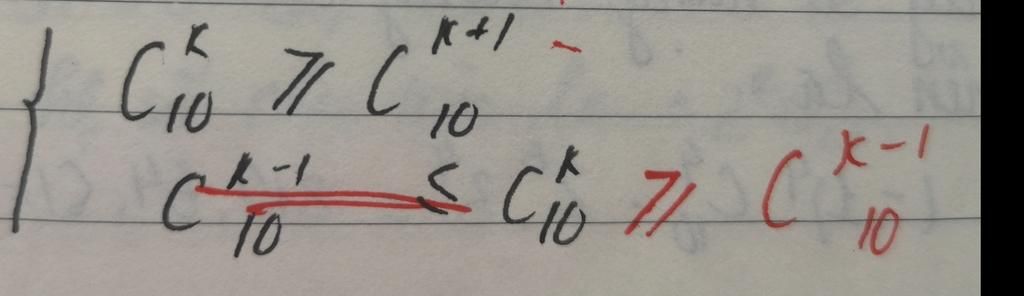 { C₁₀ᵏ ⩾ C₁₀ᵏ⁺¹
C₁₀ᵏ⁻¹ < C₁₀ᵏ ⩾ C₁₀ᵏ⁻¹